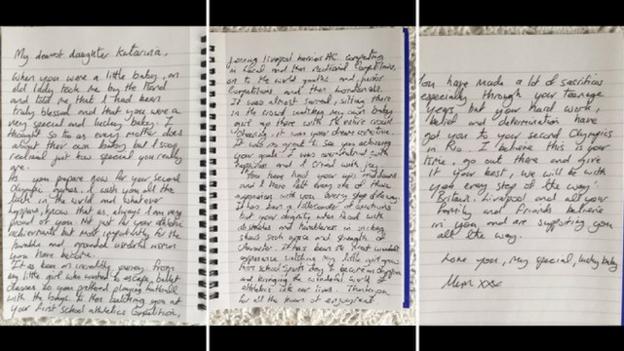 My dearest daughter Katarina,
When you were a little baby, an
old lady took me by the hand
and told me that I had been
truly blessed and that you were a
very special and lucky baby. I
thought so too as every mother does
about their own baby but I soon
realised just how special you really
are.
As you prepare now for your second
Olympic games, I wish you all the
luck in the world and whatever
happens, know that as always I am very
proud of you. Not just for your athletic
achievements but most importantly for the
humble and grounded wonderful woman
you have become.
It has been an incredible journey. From
my little girl who wanted to escape ballet
classes as you preferred playing football
with the boys, to then watching you at
your first school athletics competition,
Joining Liverpool Harriers AC competing
in local and then national competitions,
on to the world youths and junior
competitions and then worldwide.
It was almost surreal, sitting there
in the crowd watching my own baby
out there with the entire crowd
cheering, it was your dream come true.
It was so great to see you achieving
your goals. I was overwhelmed with
happiness and I cried with joy.
You have had your ups and downs
and I have felt every one of those
experiences with you every step of the way.
It has been a rollercoaster of emotions
but your dignity when faced with
obstacles and humbleness in victory
shows such grace and strength of
character. It has been the most wonderful
experience watching my little girl grow
from school sports day to become an Olympian
and bringing the wonderful world of
athletics into our lives. Thank you
for all the hours of enjoyment
You have made a lot of sacrifices
especially through your teenage
years but your hard work,
belief and determination have
got you to your second Olympics
in Rio. I believe this is your
time, go out there and give
it your best, we will be with
you every step of the way.
Britain, Liverpool and all your
family and friends believe
in you and are supporting you
all the way.
Love you, my special, lucky baby
Mum xxx